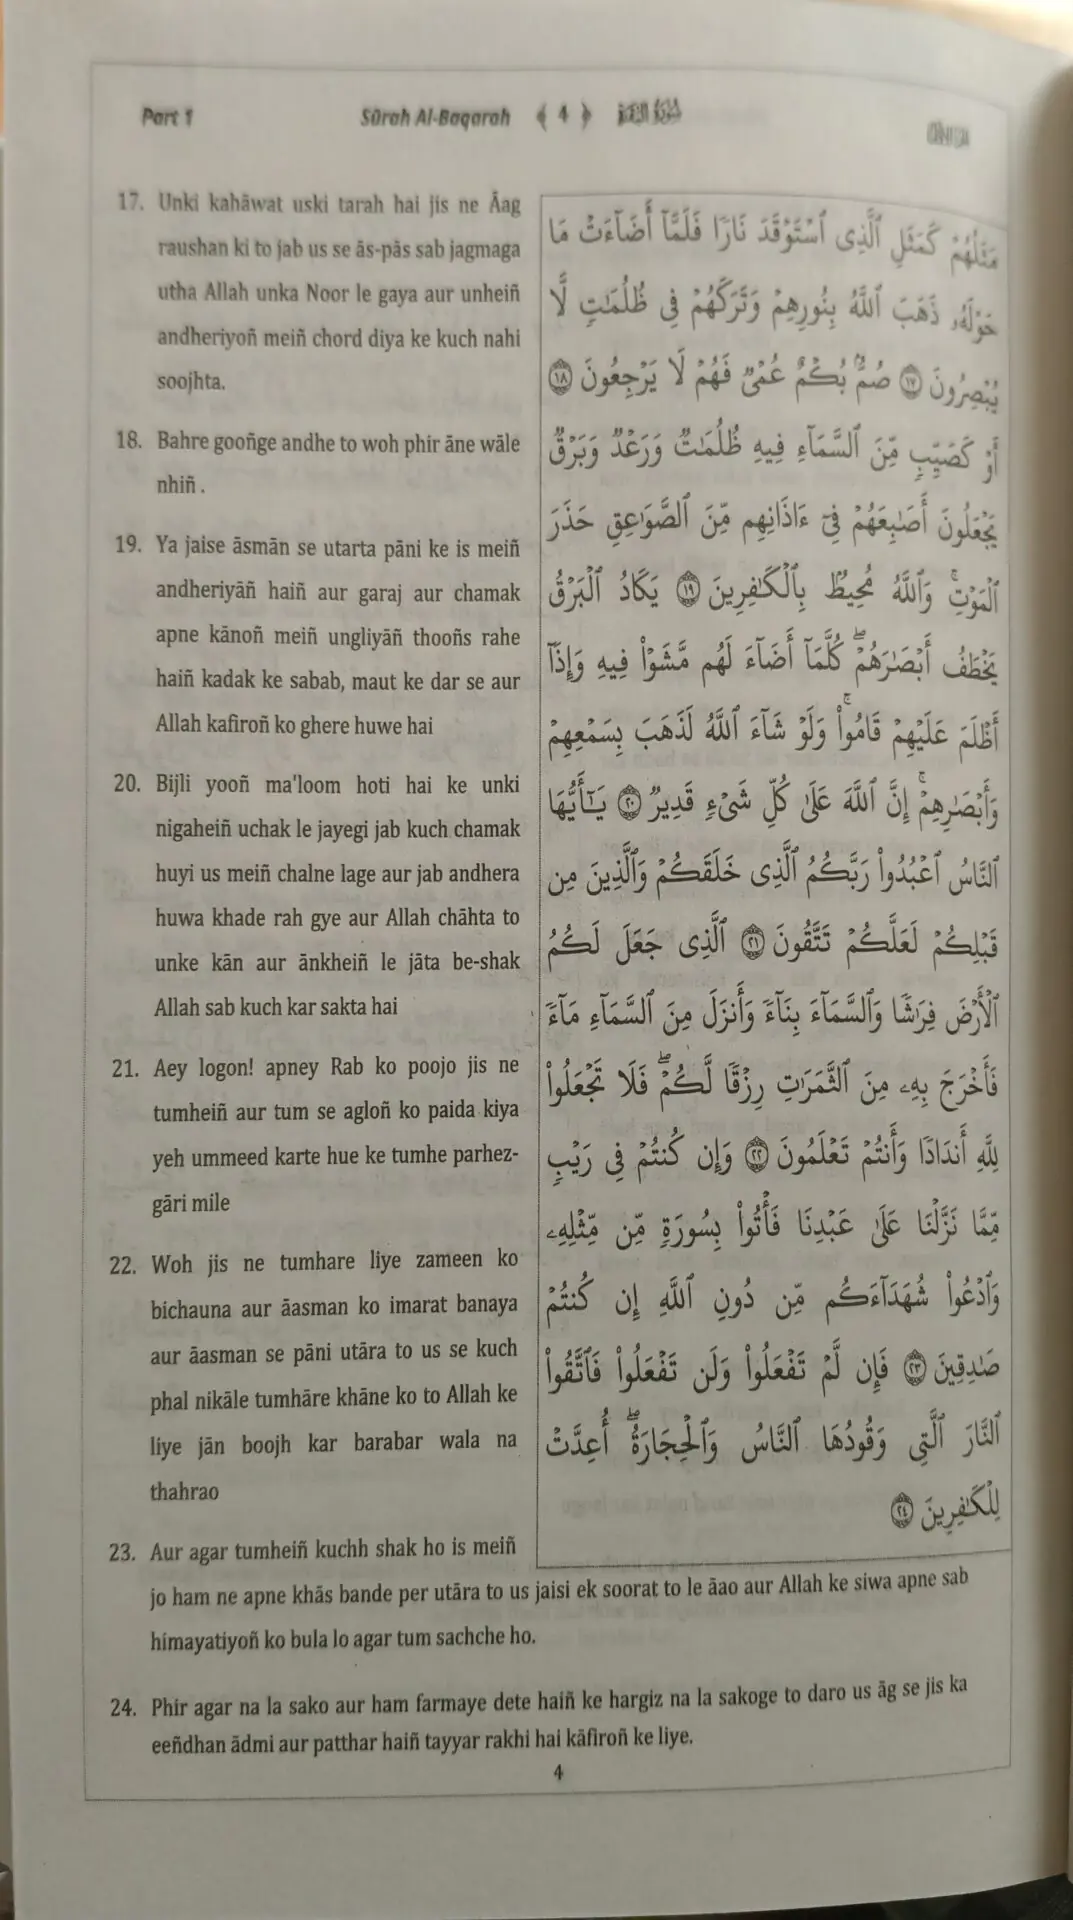 Part 1
Sūrah Al-Baqarah ﴾ 4 ﴿
17. Unki kahāwat uski tarah hai jis ne Āag
raushan ki to jab us se ās-pās sab jagmaga
utha Allah unka Noor le gaya aur unheiñ
andheriyoñ meiñ chord diya ke kuch nahi
soojhta.
18. Bahre gooñge andhe to woh phir āne wāle
nhiñ .
19. Ya jaise āsmān se utarta pāni ke is meiñ
andheriyāñ haiñ aur garaj aur chamak
apne kānoñ meiñ ungliyāñ thooñs rahe
haiñ kadak ke sabab, maut ke dar se aur
Allah kafiroñ ko ghere huwe hai
20. Bijli yooñ ma'loom hoti hai ke unki
nigaheiñ uchak le jayegi jab kuch chamak
huyi us meiñ chalne lage aur jab andhera
huwa khade rah gye aur Allah chāhta to
unke kān aur ānkheiñ le jāta be-shak
Allah sab kuch kar sakta hai
21. Aey logon! apney Rab ko poojo jis ne
tumheiñ aur tum se agloñ ko paida kiya
yeh ummeed karte hue ke tumhe parhez-
gāri mile
22. Woh jis ne tumhare liye zameen ko
bichauna aur āasman ko imarat banaya
aur āasman se pāni utāra to us se kuch
phal nikāle tumhāre khāne ko to Allah ke
liye jān boojh kar barabar wala na
thahrao
23. Aur agar tumheiñ kuchh shak ho is meiñ
jo ham ne apne khās bande per utāra to us jaisi ek soorat to le āao aur Allah ke siwa apne sab
himayatiyoñ ko bula lo agar tum sachche ho.
24. Phir agar na la sako aur ham farmaye dete haiñ ke hargiz na la sakoge to daro us āg se jis ka
eeñdhan ādmi aur patthar haiñ tayyar rakhi hai kāfiroñ ke liye.
مَثَلُهُمْ كَمَثَلِ ٱلَّذِى ٱسْتَوْقَدَ نَارًا فَلَمَّآ أَضَآءَتْ مَا
حَوْلَهُۥ ذَهَبَ ٱللَّهُ بِنُورِهِمْ وَتَرَكَهُمْ فِى ظُلُمَٰتٍ لَّا
يُبْصِرُونَ ١٧ صُمٌّۢ بُكْمٌ عُمْىٌ فَهُمْ لَا يَرْجِعُونَ ١٨
أَوْ كَصَيِّبٍ مِّنَ ٱلسَّمَآءِ فِيهِ ظُلُمَٰتٌ وَرَعْدٌ وَبَرْقٌ
يَجْعَلُونَ أَصَٰبِعَهُمْ فِىٓ ءَاذَانِهِم مِّنَ ٱلصَّوَٰعِقِ حَذَرَ
ٱلْمَوْتِ ۚ وَٱللَّهُ مُحِيطٌۢ بِٱلْكَٰفِرِينَ ١٩ يَكَادُ ٱلْبَرْقُ
يَخْطَفُ أَبْصَٰرَهُمْ ۖ كُلَّمَآ أَضَآءَ لَهُم مَّشَوْا۟ فِيهِ وَإِذَآ
أَظْلَمَ عَلَيْهِمْ قَامُوا۟ ۚ وَلَوْ شَآءَ ٱللَّهُ لَذَهَبَ بِسَمْعِهِمْ
وَأَبْصَٰرِهِمْ ۚ إِنَّ ٱللَّهَ عَلَىٰ كُلِّ شَىْءٍ قَدِيرٌ ٢٠ يَٰٓأَيُّهَا
ٱلنَّاسُ ٱعْبُدُوا۟ رَبَّكُمُ ٱلَّذِى خَلَقَكُمْ وَٱلَّذِينَ مِن
قَبْلِكُمْ لَعَلَّكُمْ تَتَّقُونَ ٢١ ٱلَّذِى جَعَلَ لَكُمُ
ٱلْأَرْضَ فِرَٰشًا وَٱلسَّمَآءَ بِنَآءً وَأَنزَلَ مِنَ ٱلسَّمَآءِ مَآءً
فَأَخْرَجَ بِهِۦ مِنَ ٱلثَّمَرَٰتِ رِزْقًا لَّكُمْ ۖ فَلَا تَجْعَلُوا۟
لِلَّهِ أَندَادًا وَأَنتُمْ تَعْلَمُونَ ٢٢ وَإِن كُنتُمْ فِى رَيْبٍ
مِّمَّا نَزَّلْنَا عَلَىٰ عَبْدِنَا فَأْتُوا۟ بِسُورَةٍ مِّن مِّثْلِهِۦ
وَٱدْعُوا۟ شُهَدَآءَكُم مِّن دُونِ ٱللَّهِ إِن كُنتُمْ
صَٰدِقِينَ ٢٣ فَإِن لَّمْ تَفْعَلُوا۟ وَلَن تَفْعَلُوا۟ فَٱتَّقُوا۟
ٱلنَّارَ ٱلَّتِى وَقُودُهَا ٱلنَّاسُ وَٱلْحِجَارَةُ ۖ أُعِدَّتْ
لِلْكَٰفِرِينَ ٢٤
4